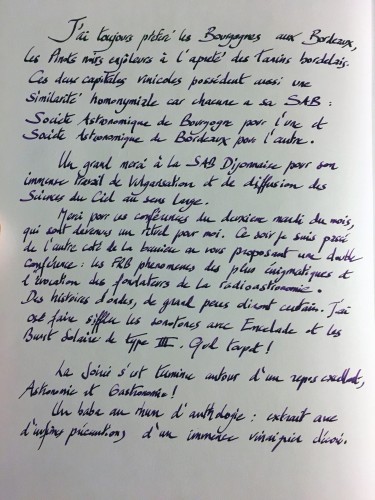 J'ai toujours préféré les Bourgognes aux Bordeaux,
les Pinots noirs enjôleurs à l'âpreté des tanins bordelais.
Ces deux capitales vinicoles possèdent aussi une
similarité homonymiale car chacune a sa SAB :
Société Astronomique de Bourgogne pour l'une et
Société Astronomique de Bordeaux pour l'autre.
Un grand merci à la SAB Dijonnaise pour son
immense travail de vulgarisation et de diffusion des
Sciences du Ciel au sens large.
Merci pour ces conférences du deuxième mardi du mois,
qui sont devenues un rituel pour moi. Ce soir je suis passé
de l'autre côté de la barrière en vous proposant une double
conférence : les FRB phénomènes des plus énigmatiques et
l'évocation des fondateurs de la radioastronomie.
Des histoires d'ondes, de grand pères diront certains. J'ai
osé faire siffler les sonotones avec Encelade et les
Burst Solaire de type III. Quel toupet !
La soirée s'est terminée autour d'un repas excellent,
Astronomie et Gastronomie !
Un baba au rhum d'anthologie : extrait avec
d'infinies précautions d'un immense vinaigrier